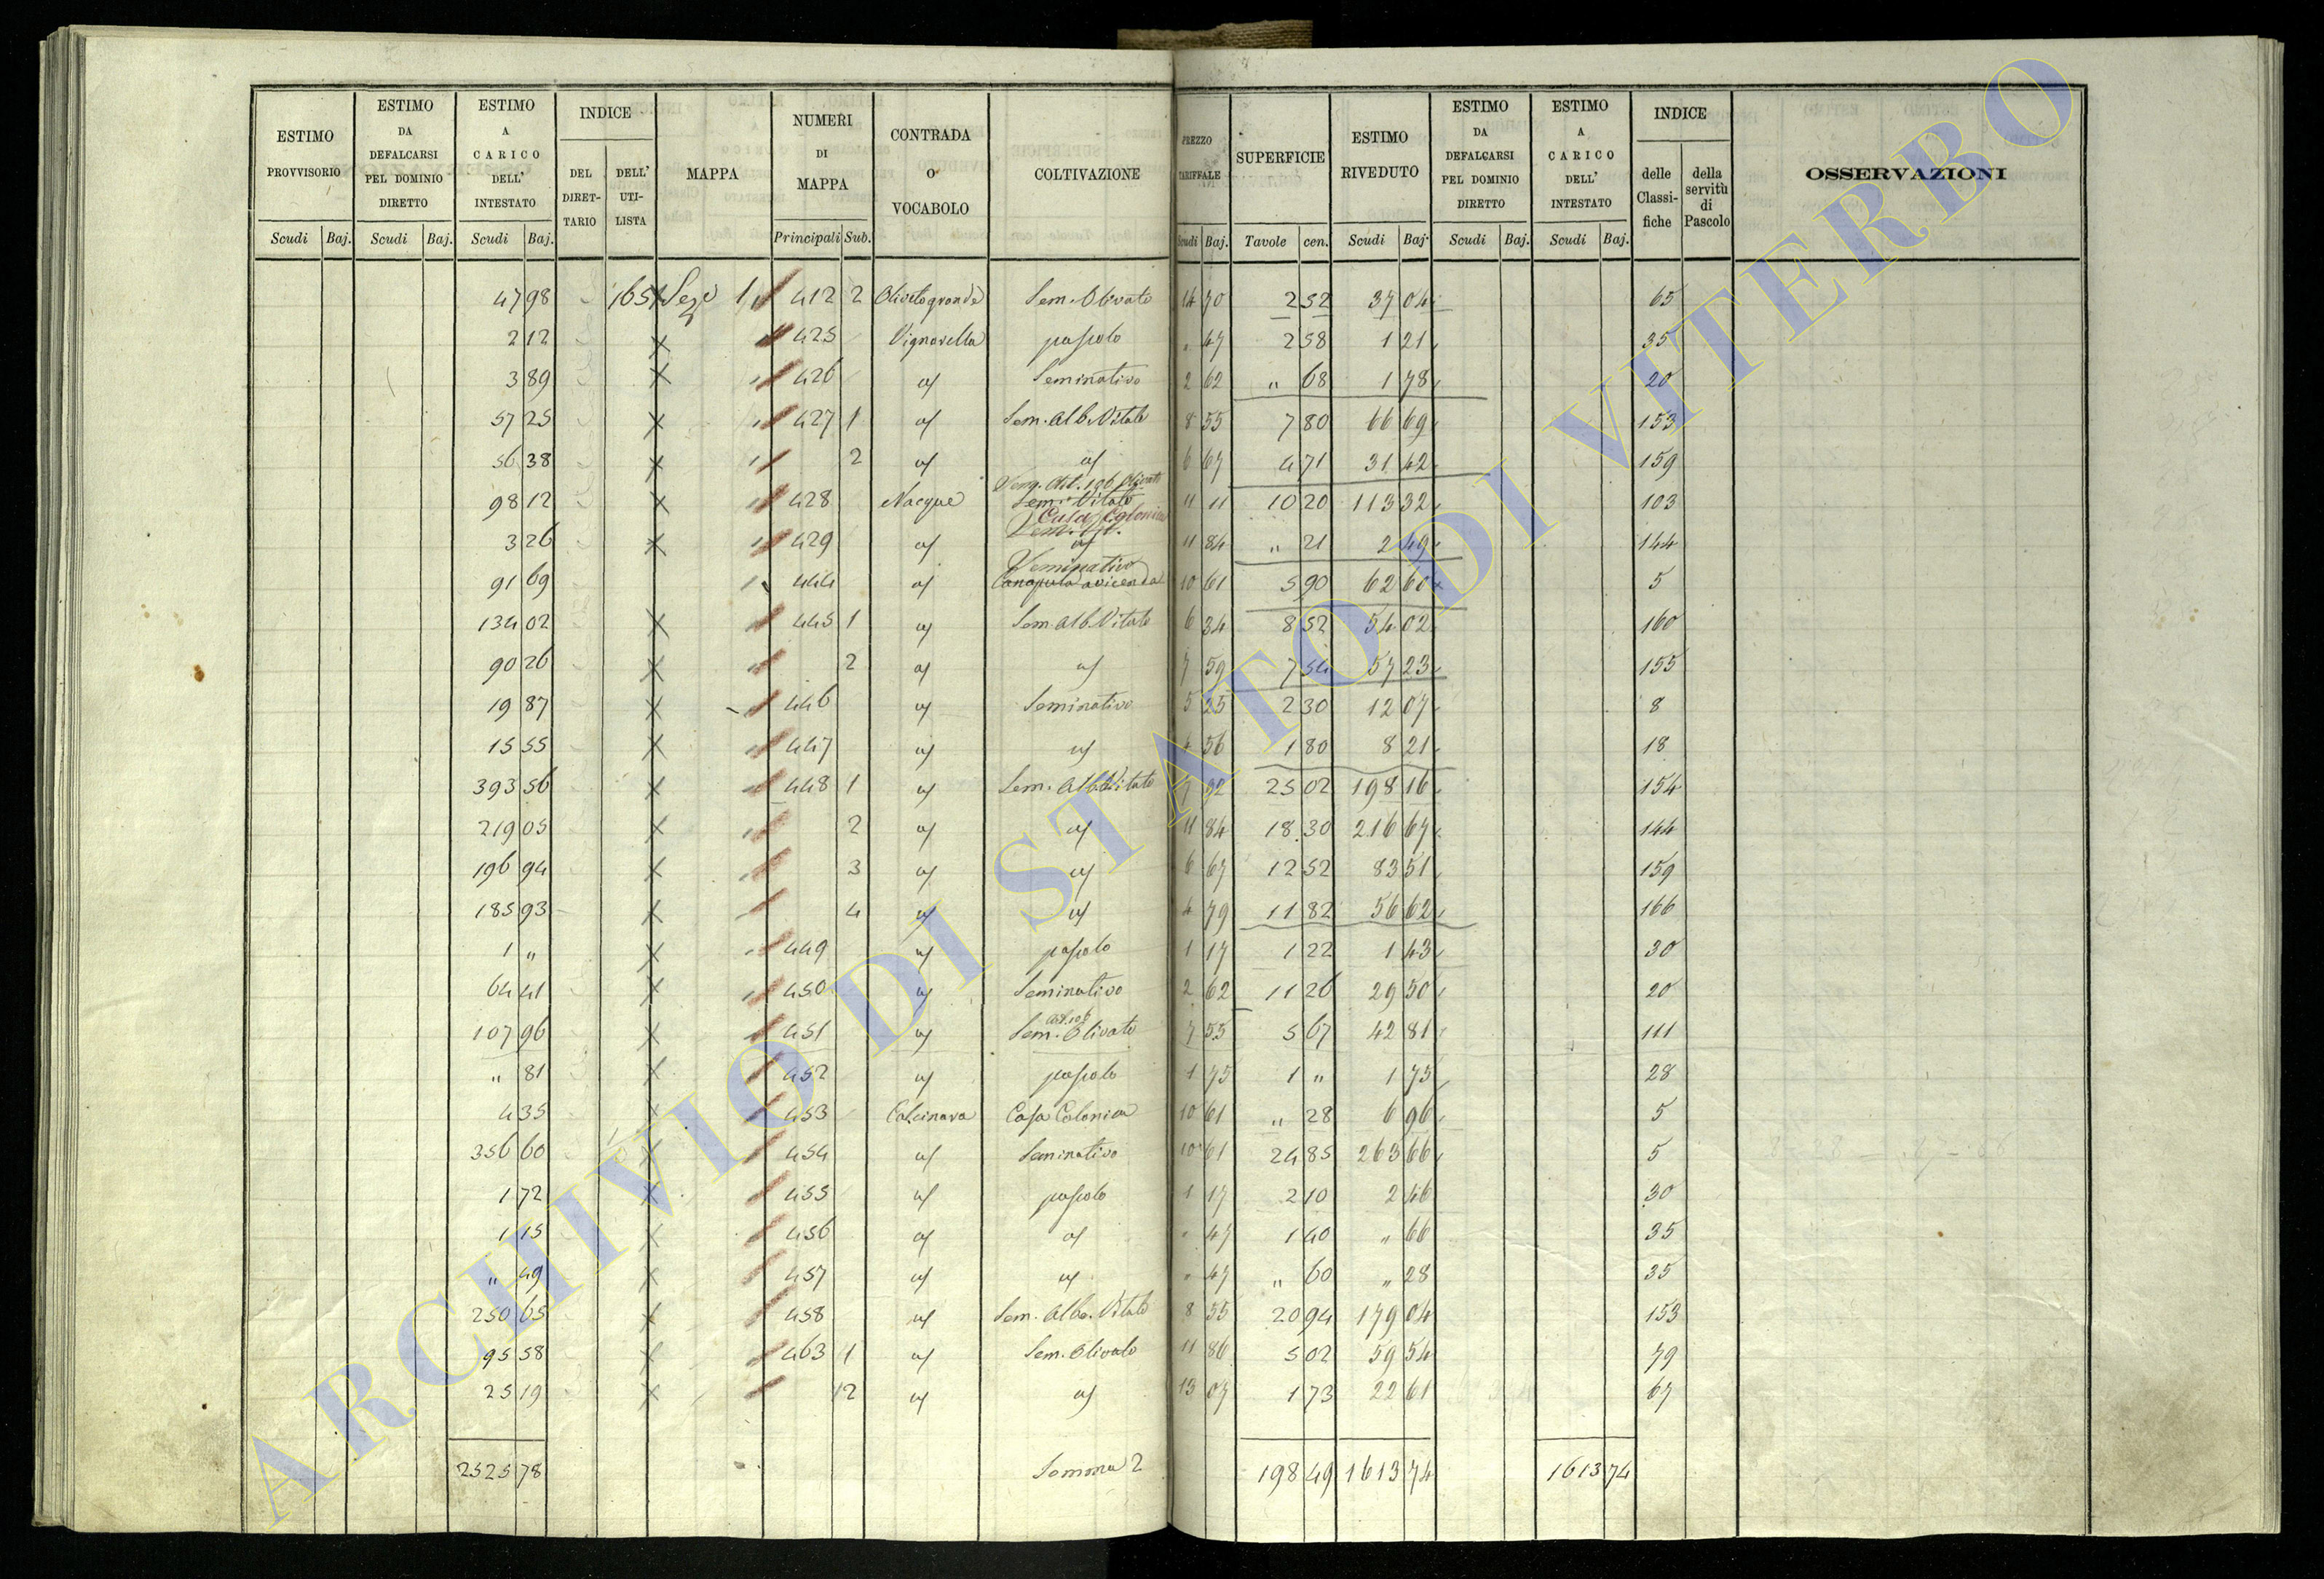 ESTIMO PROVVISORIO | ESTIMO DA DEFALCARSI PEL DOMINIO DIRETTO | ESTIMO A CARICO DELL' INTESTATO | INDICE | MAPPA | NUMERI DI MAPPA | CONTRADA O VOCABOLO | COLTIVAZIONE | PREZZO TARIFFALE | SUPERFICIE | ESTIMO RIVEDUTO | ESTIMO DA DEFALCARSI PEL DOMINIO DIRETTO | ESTIMO A CARICO DELL' INTESTATO | INDICE | OSSERVAZIONI
DEL DIRET-TARIO | DELL' UTI-LISTA | delle Classi-fiche | della servitù di Pascolo
Scudi | Baj. | Scudi | Baj. | Scudi | Baj. | Principali | Sub. | Scudi | Baj. | Tavole | cen. | Scudi | Baj. | Scudi | Baj. | Scudi | Baj.
47 98 | 1651 | Sez e 1 | 412 | 2 | Olivetogrande | Sem. Olivato | 14 70 | 2 52 | 37 04 | 65
2 12 | 425 | Vignarella | pascolo | " 47 | 2 58 | 1 21 | 35
3 89 | 426 | Seminativo | 2 62 | " 68 | 1 78 | 20
57 25 | 427 | 1 | Sem. Alb. Vitato | 8 55 | 7 80 | 66 69 | 153
56 38 | 2 | 6 67 | 4 71 | 31 42 | 159
98 12 | 428 | Nacque | Sem. Vitato | 11 11 | 10 20 | 113 32 | 103
Casa Colonica
3 26 | 429 | 11 84 | " 21 | 2 49 | 144
Seminativo
91 69 | 444 | Canapula avicenda | 10 61 | 5 90 | 62 60 | 5
134 02 | 445 | 1 | Sem. Alb. Vitato | 6 34 | 8 52 | 54 02 | 160
90 26 | 2 | 7 59 | 7 54 | 57 23 | 155
19 87 | 446 | Seminativo | 5 25 | 2 30 | 12 07 | 8
15 55 | 447 | 4 56 | 1 80 | 8 21 | 18
393 56 | 448 | 1 | Sem. Alb. Vitato | 7 92 | 25 02 | 198 16 | 154
219 05 | 2 | 11 84 | 18 30 | 216 67 | 144
196 94 | 3 | 6 67 | 12 52 | 83 51 | 159
185 93 | 4 | 4 79 | 11 82 | 56 62 | 166
1 " | 449 | pascolo | 1 17 | 1 22 | 1 43 | 30
64 41 | 450 | Seminativo | 2 62 | 11 26 | 29 50 | 20
107 96 | 451 | Sem. Olivato | 7 55 | 5 67 | 42 81 | 111
" 81 | 452 | pascolo | 1 75 | 1 " | 1 75 | 28
4 35 | 453 | Calcinara | Casa Colonica | 10 61 | " 28 | 6 96 | 5
356 60 | 454 | Seminativo | 10 61 | 24 85 | 263 66 | 5
1 72 | 455 | pascolo | 1 17 | 2 10 | 2 46 | 30
1 15 | 456 | " 47 | 1 40 | " 66 | 35
" 49 | 457 | " 47 | " 60 | " 28 | 35
250 65 | 458 | Sem. Alb. Vitato | 8 55 | 20 94 | 179 04 | 153
95 58 | 463 | 1 | Sem. Olivato | 11 86 | 5 02 | 59 54 | 79
25 19 | 12 | 13 07 | 1 73 | 22 61 | 67
2525 78 | Somma 2 | 198 49 | 1613 74 | 1613 74
ARCHIVIO DI STATO DI VITERBO